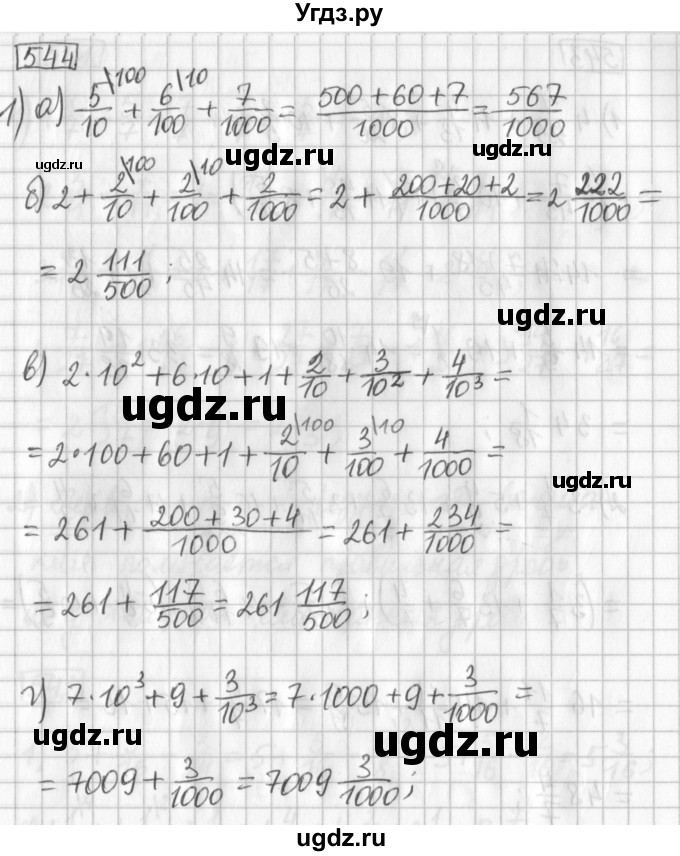 Угдз.ру
544
1) а) 5\100/10 + 6\10/100 + 7/1000 = (500+60+7)/1000 = 567/1000
ugdz.ru ugdz.ru ugdz.ru
б) 2 + 2\100/10 + 2\10/100 + 2/1000 = 2 + (200+20+2)/1000 = 2 222/1000 =
= 2 111/500 ;
в) 2·10² + 6·10 + 1 + 2/10 + 3/10² + 4/10³ =
ugdz.ru
= 2·100 + 60 + 1 + 2\100/10 + 3\10/100 + 4/1000 =
ugdz.ru
= 261 + (200+30+4)/1000 = 261 + 234/1000 =
= 261 + 117/500 = 261 117/500 ;
г) 7·10³ + 9 + 3/10³ = 7·1000 + 9 + 3/1000 =
ugdz.ru ugdz.ru
= 7009 + 3/1000 = 7009 3/1000 ;
ugdz.ru